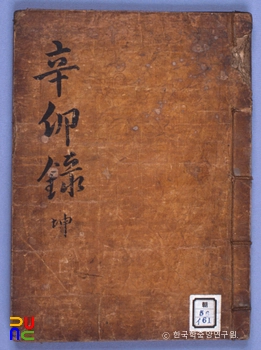 辛卯錄
坤
161
© 한국학중앙연구원